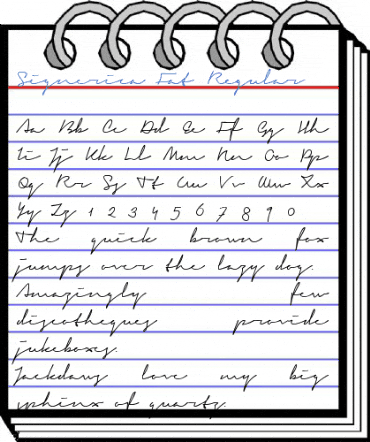 Signerica Fat Regular
Aa Bb Cc Dd Ee Ff Gg Hh
Ii Jj Kk Ll Mm Nn Oo Pp
Qq Rr Ss Tt Uu Vv Ww Xx
Yy Zz 1 2 3 4 5 6 7 8 9 0
The quick brown fox
jumps over the lazy dog.
Amazingly few
discotheques provide
jukeboxes.
Jackdaws love my big
sphinx of quartz.